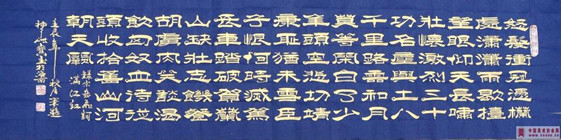 怒髮衝冠憑欄
處瀟瀟雨歇抬
望眼仰天長嘯
壯懷激烈三十
功名塵與土八
千里路雲和月
莫等閒白了少
年頭空悲切靖
康恥猶未雪臣
子恨何時滅駕
長車踏破賀蘭
山缺壯志飢餐
胡虜肉笑談渴
飲匈奴血待從
頭收拾舊山河
朝天闕
錄宋岳飛詞
滿江紅
壬辰年秋月